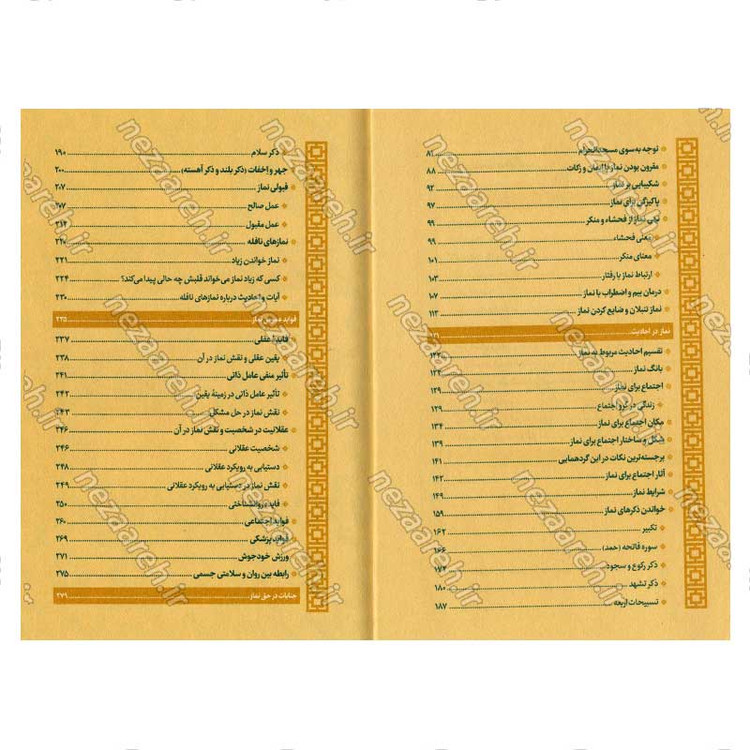 توجه به‌سوی مسجدالحرام ۸۱
مقرون بودن نماز با ایمان و زکات ۸۸
شکیبایی بر نماز ۹۲
پاکیزگی برای نماز ۹۷
نهی نماز از فحشاء و منکر ۹۹
معنی فحشاء ۹۹
معنای منکر ۱۰۱
ارتباط نماز با رفتار ۱۰۳
درمان بیم و اضطراب با نماز ۱۰۷
نماز تنبلان و ضایع کردن نماز ۱۱۳
نماز در احادیث
تقسیم احادیث مربوط به نماز
بانگ نماز
اجتماع برای نماز ۱۲۹
زندگی در گرو اجتماع ۱۲۹
مکان اجتماع برای نماز ۱۳۴
شکل و ساختار اجتماع برای نماز ۱۳۹
برجسته‌ترین نکات در این گردهمایی ۱۴۱
آثار اجتماع برای نماز ۱۴۲
شرایط نماز ۱۴۹
خواندن ذکرهای نماز ۱۵۹
تکبیر ۱۶۲
سوره فاتحه (حمد) ۱۶۶
ذکر رکوع و سجود ۱۷۴
ذکر تشهد ۱۸۰
تسبیحات اربعه ۱۸۷
ذکر سلام ۱۹۰
جهر و إخفات (ذکر بلند و ذکر آهسته) ۲۰۰
قبولی نماز ۲۰۷
عمل صالح ۲۰۷
عمل مقبول ۲۱۴
نمازهای نافله ۲۲۰
نماز خواندن زیاد ۲۲۱
کسی که زیاد نماز می‌خواند قلبش چه حالی پیدا می‌کند؟ ۲۲۴
آیات و احادیث درباره نمازهای نافله ۲۳۰
فواید نماز ۲۳۵
فایدۀ عقلی ۲۳۷
یقین عقلی و نقش نماز در آن ۲۳۸
تأثیر منفی عامل ذاتی ۲۴۱
تأثیر عامل ذاتی در زمینۀ یقین ۲۴۲
نقش نماز در حل مشکل ۲۴۳
عقلانیت در شخصیت و نقش نماز در آن ۲۴۶
شخصیت عقلانی ۲۴۶
دستیابی به رویکرد عقلانی ۲۴۸
نقش نماز در دستیابی به رویکرد عقلانی ۲۴۹
فایده روانشناختی ۲۵۰
فواید اجتماعی ۲۶۰
فواید پزشکی ۲۶۹
ورزش خودجوش ۲۷۱
رابطه بین روان و سلامتی جسمی ۲۷۵
جنایات در حق نماز ۲۷۹
nezaareh.ir